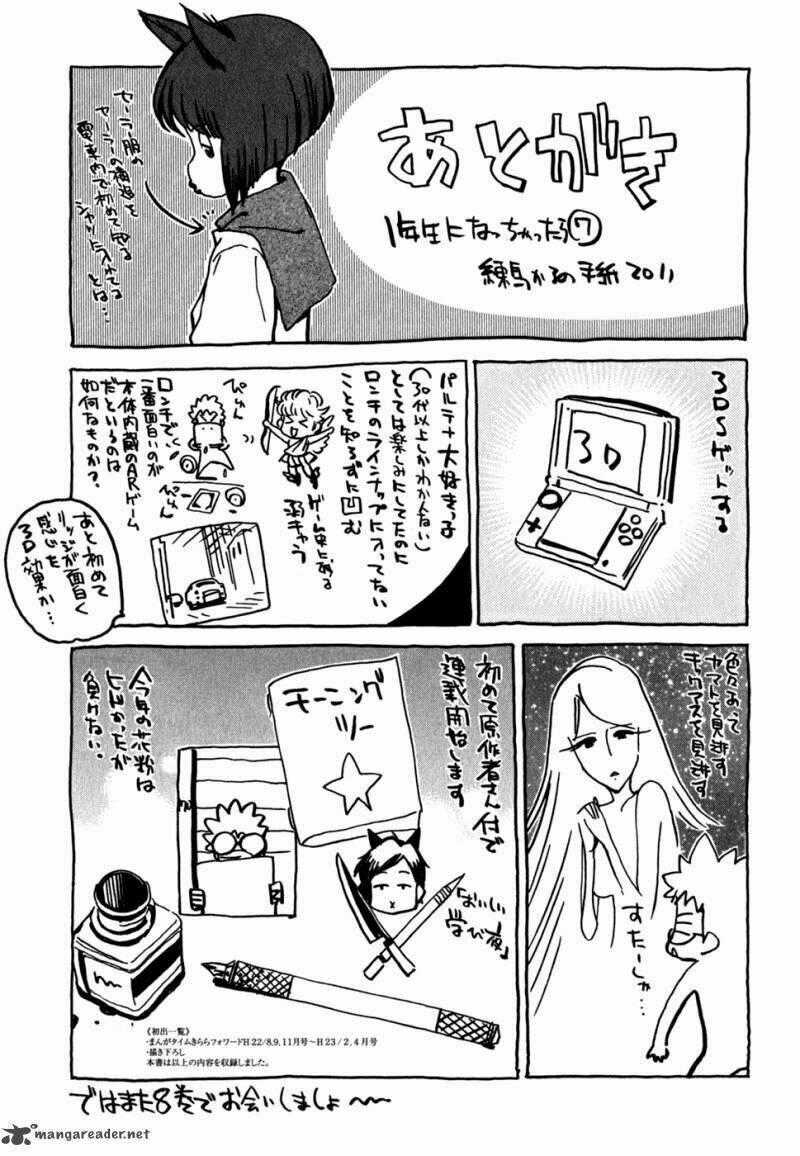 あとがき
1年生になっちゃったら⑦
練馬かるの手紙2011
セーラー服の
セーラーの構造を
電車内で初めて知る
シャツに入れてる
とは…
3DSゲットする
3D
パルテナ大好きっ子
(30代以上しかわかんない)
としては楽しみにしてたのに
ロンチのラインナップに入ってない
ことを知らずに凹む
ゲーム史にある
弱キャラ
ぴょん
ぴょん
ロンチで
一番面白いのが
本体内蔵のARゲーム
だというのは
如何なものか?
あと初めて
リッジが面白く
感じた
3D効果か…
色々あって
ヤマトを見逃す
キックアスを見逃す
すたーしゃ…
初めて原作者さん付で
連載開始します
モーニング
ツー
「おいしい
学び夜」
今年の花粉は
とんかったが
負けない。
《初出一覧》
・まんがタイムきららフォワードH22/8,9,11月号〜H23/2,4月号
・描き下ろし
本書は以上の内容を収録しました。
ではまた8巻でお会いしましょ〜
mangareader.net